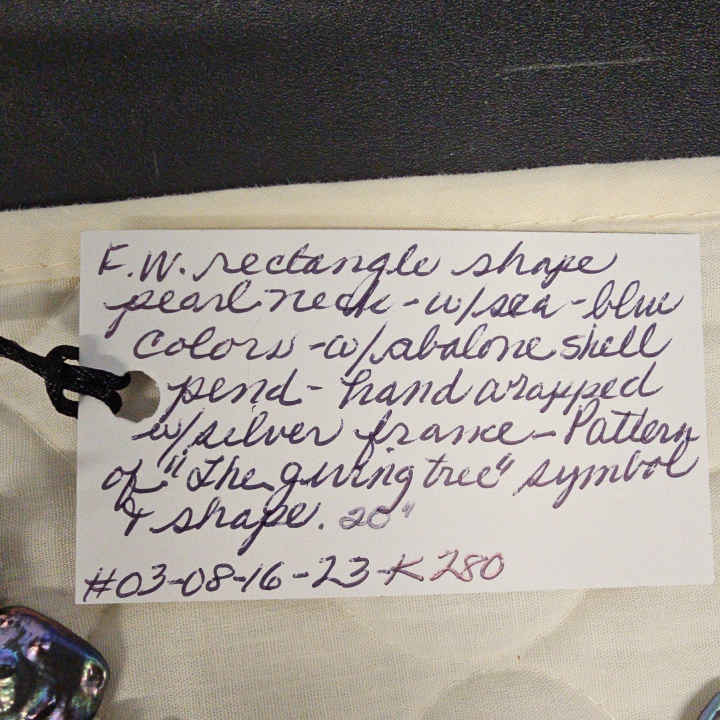 F.W. rectangle shape
pearl neck - w/sea - blue
colors - w/abalone shell
pend - hand wrapped
w/silver frame - Pattern
of "The giving tree" symbol
& shape. 20"
#03-08-16-23-K 280